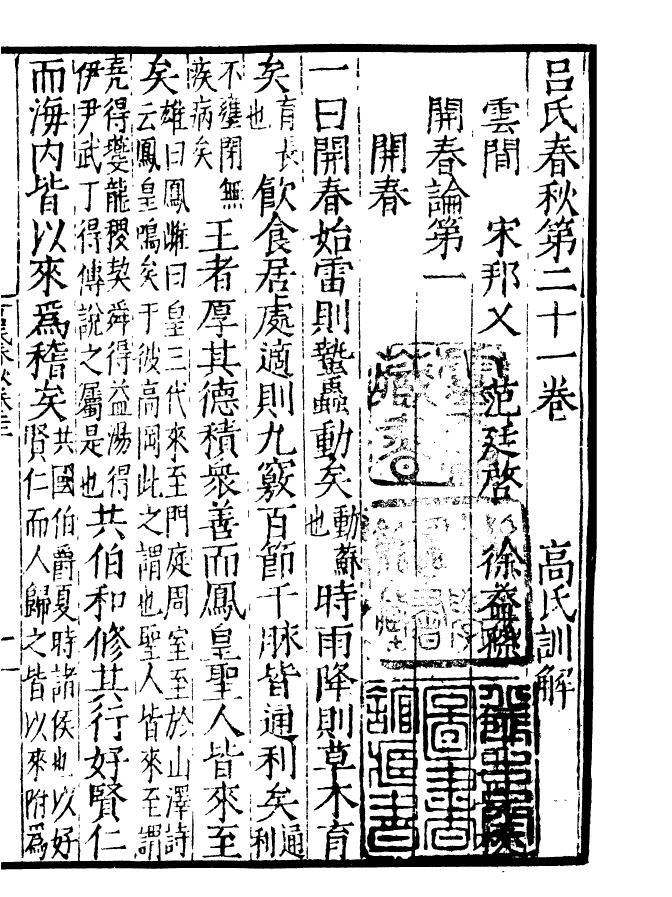 呂氏春秋第二十一卷　高氏訓解
雲間　宋邦乂　范廷啓　徐益孫
開春論第一
開春
一曰開春始雷則蟄蟲動矣動蘇也時雨降則草木育
矣育長也飲食居處適則九竅百節千脉皆通利矣通利
不壅閉無疾病矣王者厚其德積衆善而鳳皇聖人皆來至
矣雄曰鳳雌曰皇三代來至門庭周室至於山澤詩云鳳皇鳴矣于彼高岡此之謂也聖人皆來至謂
堯得夔龍稷契舜得益湯得伊尹武丁得傅說之屬是也共伯和修其行好賢仁
而海内皆以來爲稽矣共國伯爵夏時諸侯也以好賢仁而人歸之皆以來附爲